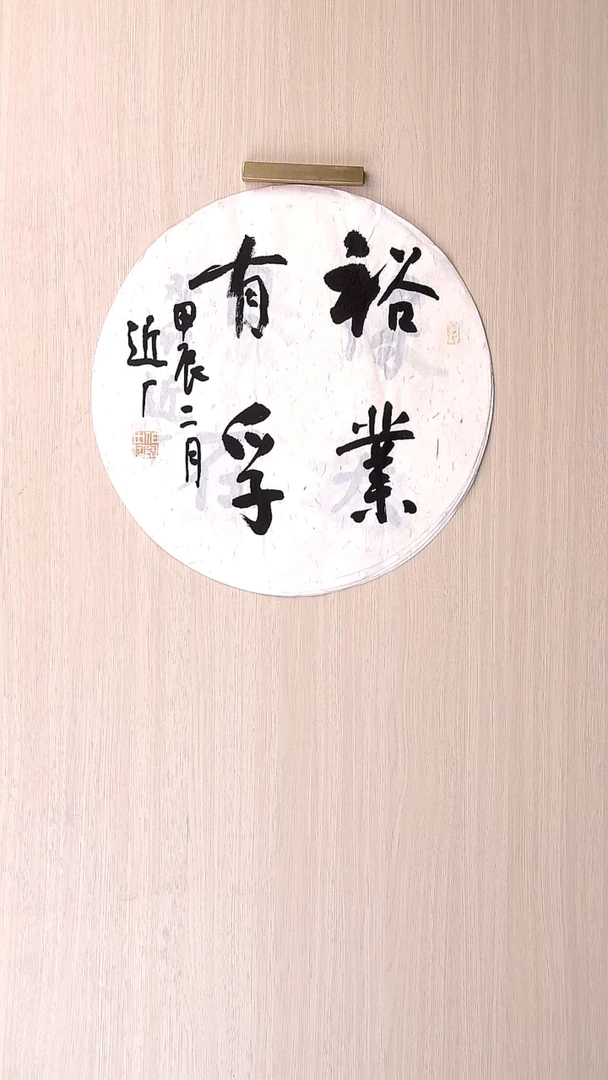 裕業
有孚
甲辰二月
近厂